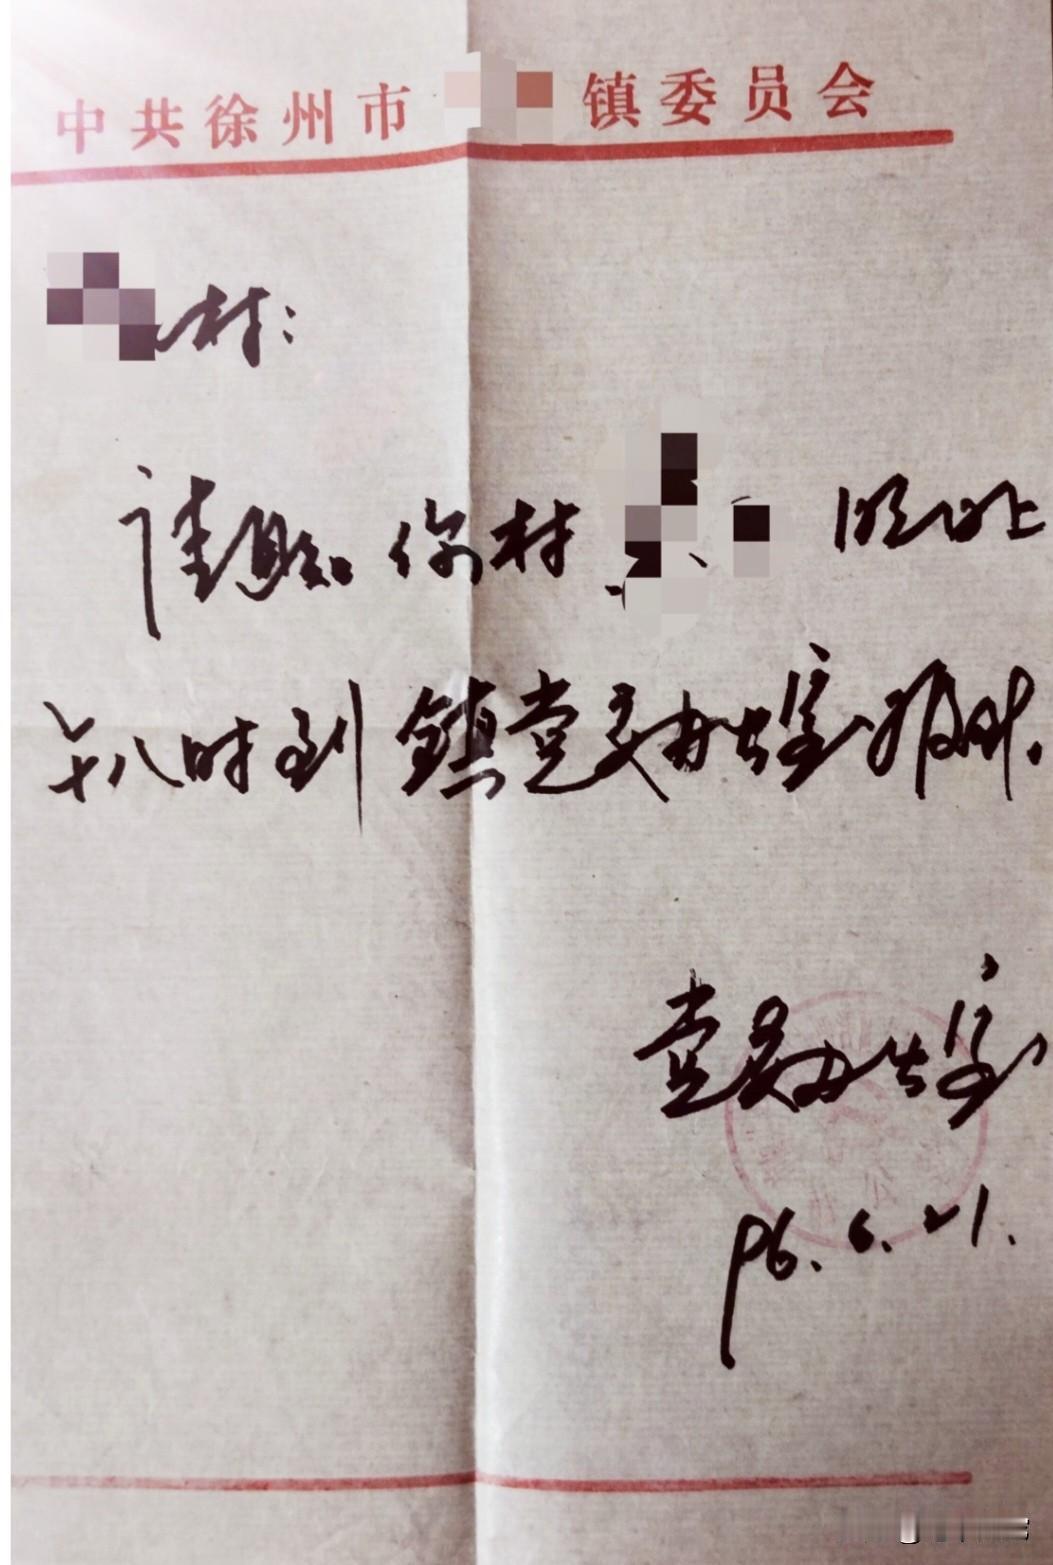 中共徐州市 镇委员会
村：
请通知你村 、 明日上
午八时到镇党委办公室报到.
党委办公室
96.6.21.